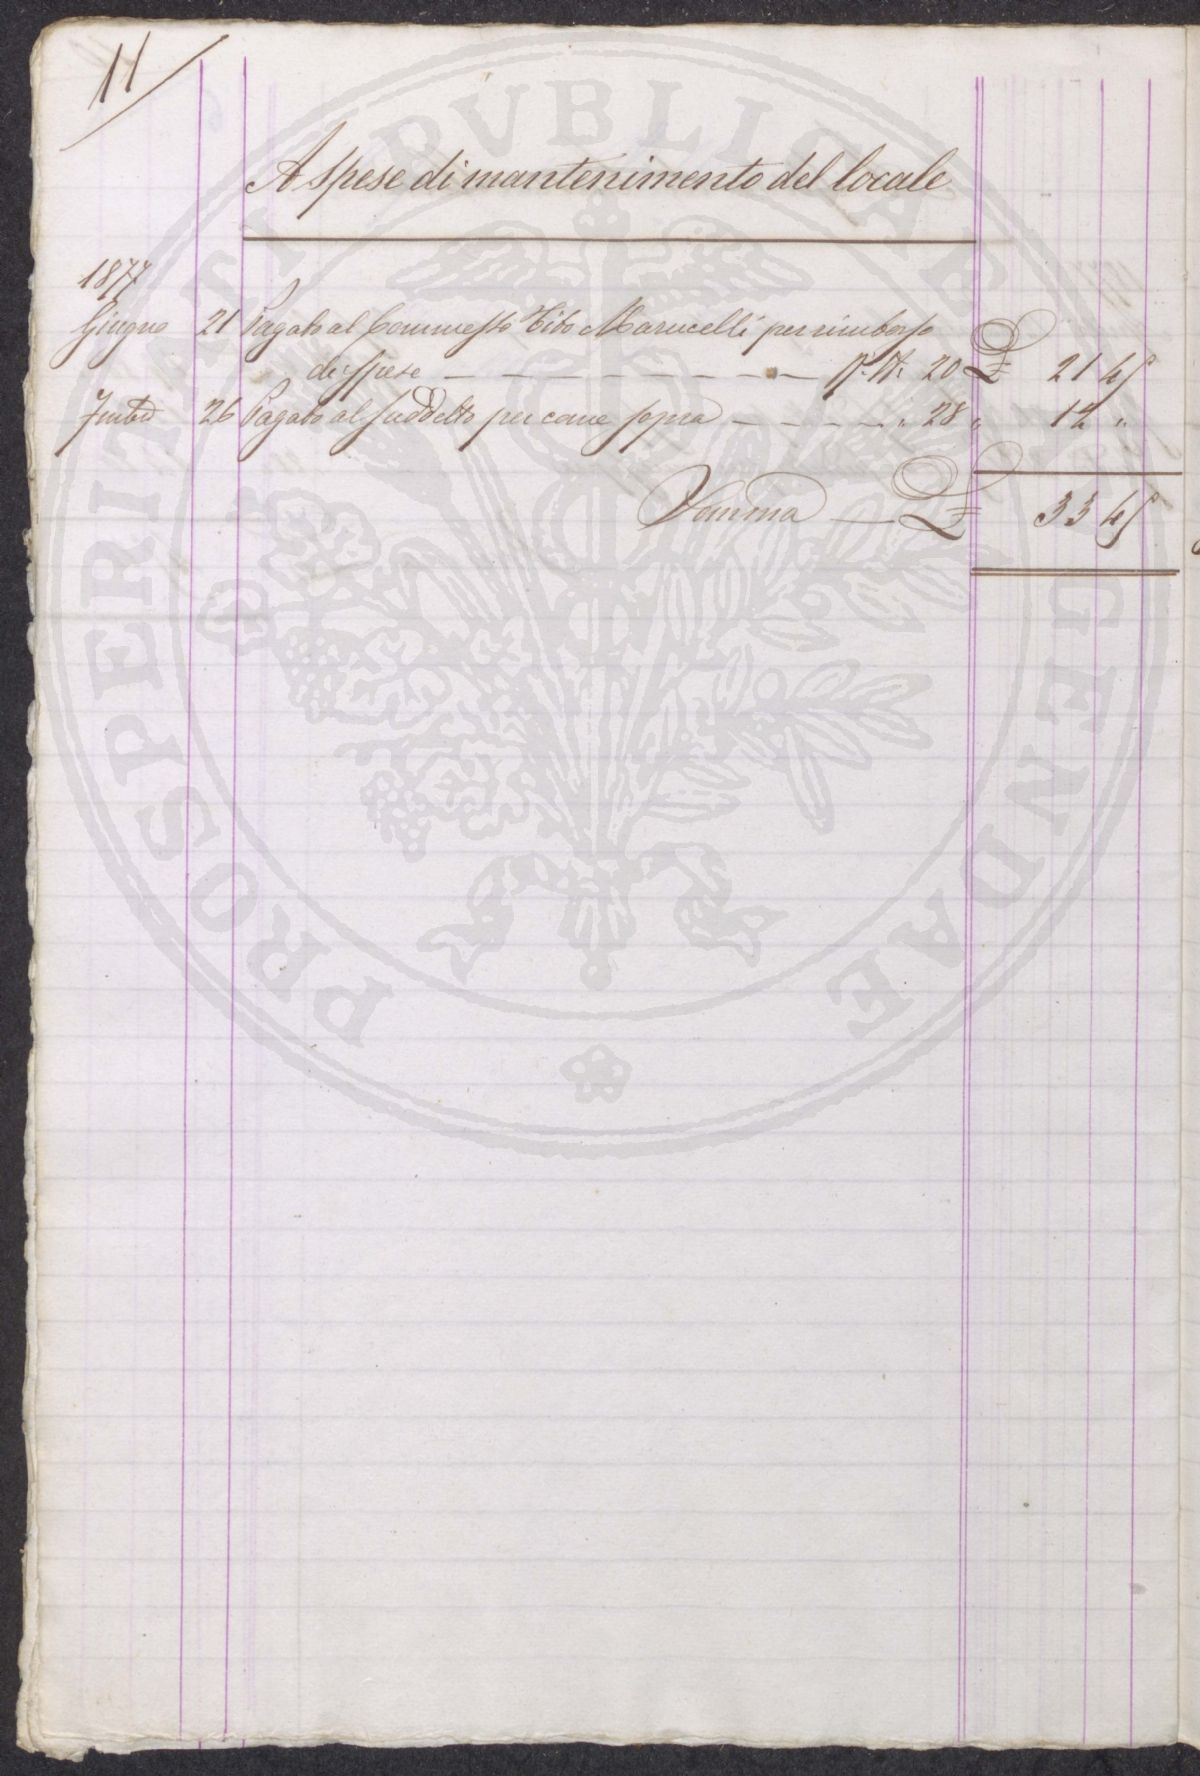 11
A spese di mantenimento del locale
1877
Giugno 21 Pagato al Commesso Tito Marucelli per rimborso
di spese — — — — — — — — N. 20 £ 21 45
7mbre 26 Pagato al suddetto per come sopra — — — — „ 28 „ 12 „
Somma — £ 33 45
PROSPERITATI PVBLICAE AVGENDAE